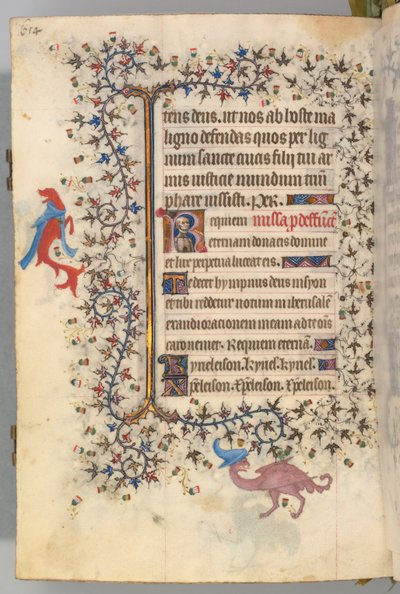 614
tens deus. ut nos ab hoste ma
ligno defendas quos per lig
num sancte crucis filij tui ar
mis iusticie mundum
phare iussisti. Per.
Requiem missa p defunct
eternam dona eis domine
et lux perpetua luceat eis.
Te decet hympnus deus in syon
et tibi reddetur votum in iherusalem
exaudi orationem meam ad te ois
caro veniet. Requiem eternā.
Kyrieleison. kyriel. kyriel.
Xpeleison. Xpeleison. Xpeleison.